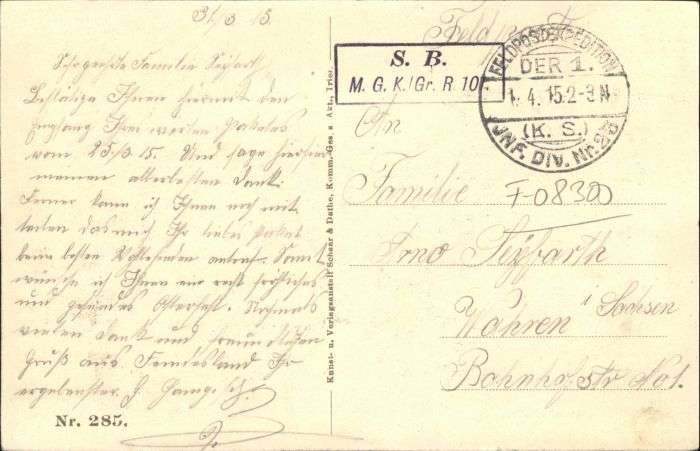 31/3 15.
Sehr geehrte Familie Seifarth
Bestätige Ihnen hiermit den
Empfang Ihres werten Paketes
vom 25/3 15. Und sage hierfür
meinen allerbesten Dank.
Ferner kann ich Ihnen noch mit
teilen das mich Ihr liebes Paket
beim besten Wohlbefinden antraf. Sonst
wünsche ich Ihnen ein recht fröhliches
und gesundes Osterfest. Nochmals
vielen Dank und freundlichen
Gruß aus Feindesland Ihr
ergebenster
Nr. 285.
Kunst- u. Verlagsanstalt Schaar & Dathe, Komm.-Ges. a. Akt., Trier.
Feldpost
S. B.
M. G. K./Gr. R 10
FELDPOSTEXPEDITION
DER 1.
1. 4. 15. 2-3 N
(K. S.)
INF. DIV. Nr.
An
Familie
F-08300
Arno Seifarth
Wahren Sachsen
Bahnhofstr No 1.